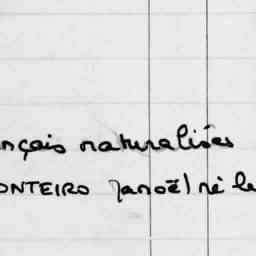 nçais naturalisés
ONTEIRO Janoël né le